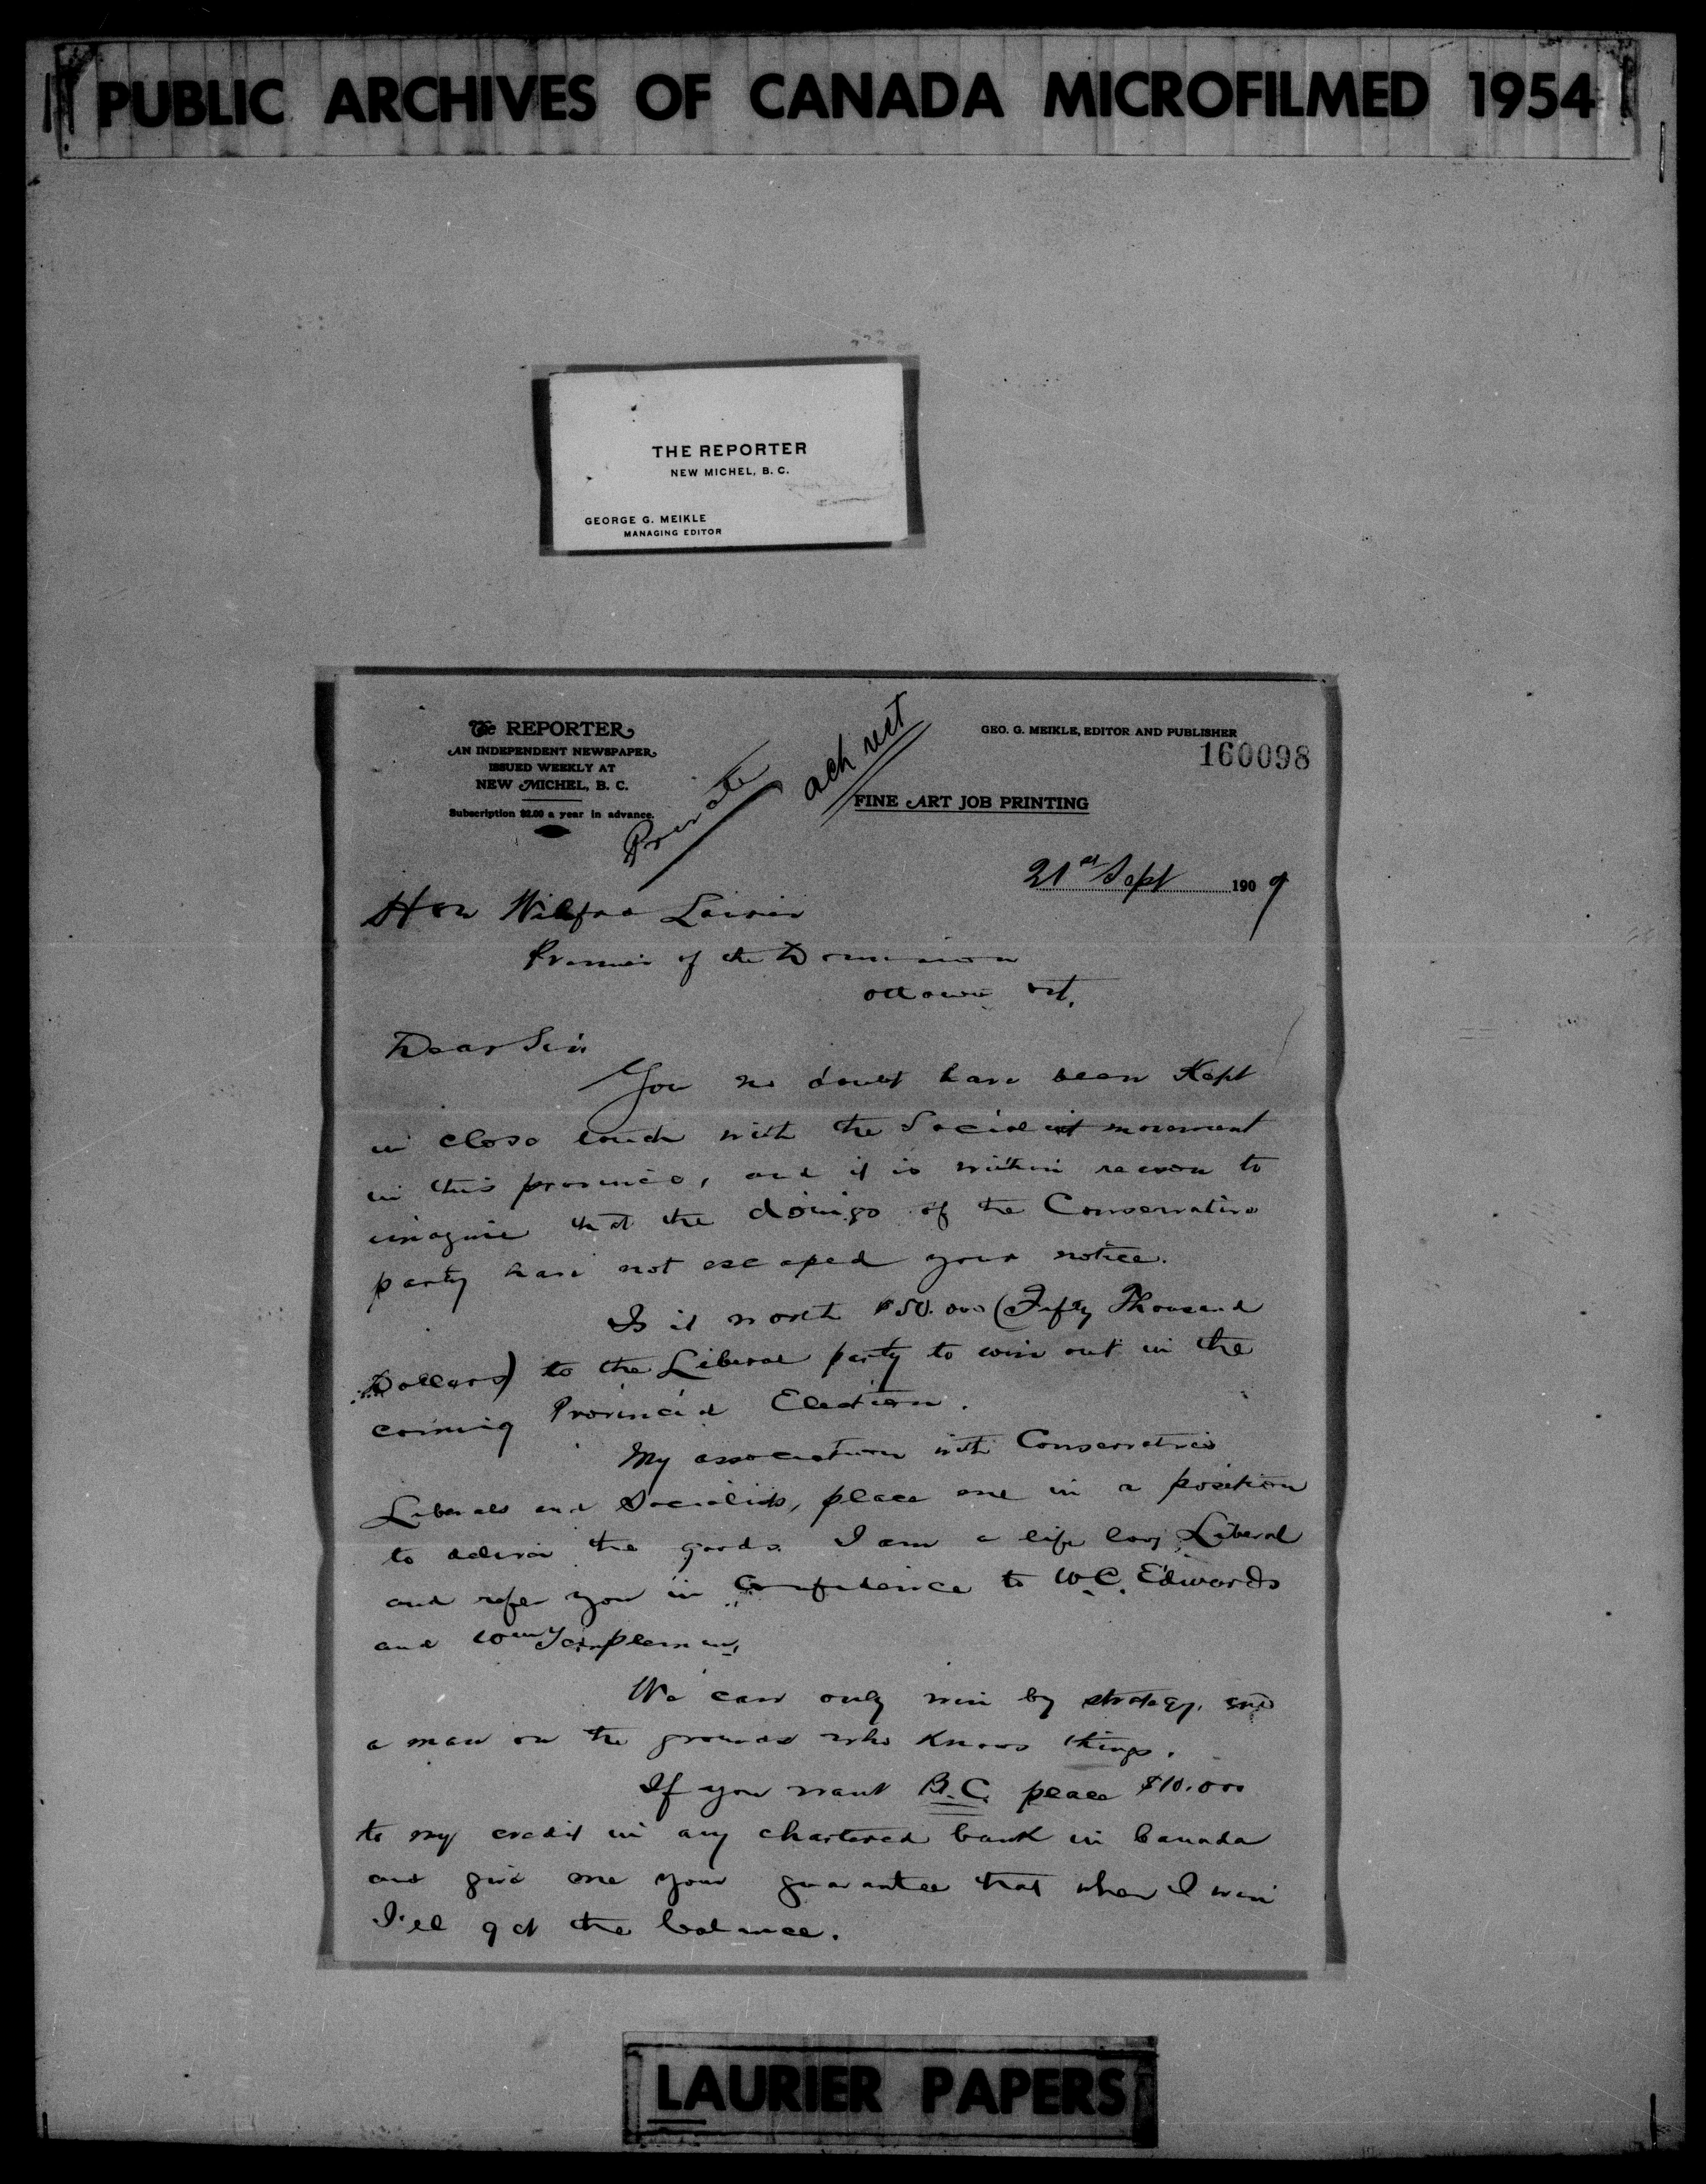 PUBLIC ARCHIVES OF CANADA MICROFILMED 1954
THE REPORTER
NEW MICHEL, B. C.
GEORGE G. MEIKLE
MANAGING EDITOR
The REPORTER
AN INDEPENDENT NEWSPAPER
ISSUED WEEKLY AT
NEW MICHEL, B. C.
Subscription $2.00 a year in advance.
Private
ack rect
GEO. G. MEIKLE, EDITOR AND PUBLISHER
160098
FINE ART JOB PRINTING
21st Sept 1909
Hon Wilfred Laurier
Premier of the Dominion
Ottawa Ont.
Dear Sir
You no doubt have been Kept
in close touch with the Socialist movement
in this province, and it is within reason to
imagine that the doings of the Conservative
party have not escaped your notice.
Is it worth $50.000 (Fifty Thousand
Dollars) to the Liberal party to win out in the
coming Provincial Election.
My association with Conservatives
Liberals and Socialists, place me in a position
to deliver the goods. I am a life long Liberal
and refer you in Confidence to W.C. Edwards
and Wm Templeman.
We can only win by strategy, and
a man on the grounds who Knows things.
If you want B.C. place $10.000
to my credit in any chartered bank in Canada
and give me your guarantee that when I win
I'll get the balance.
LAURIER PAPERS